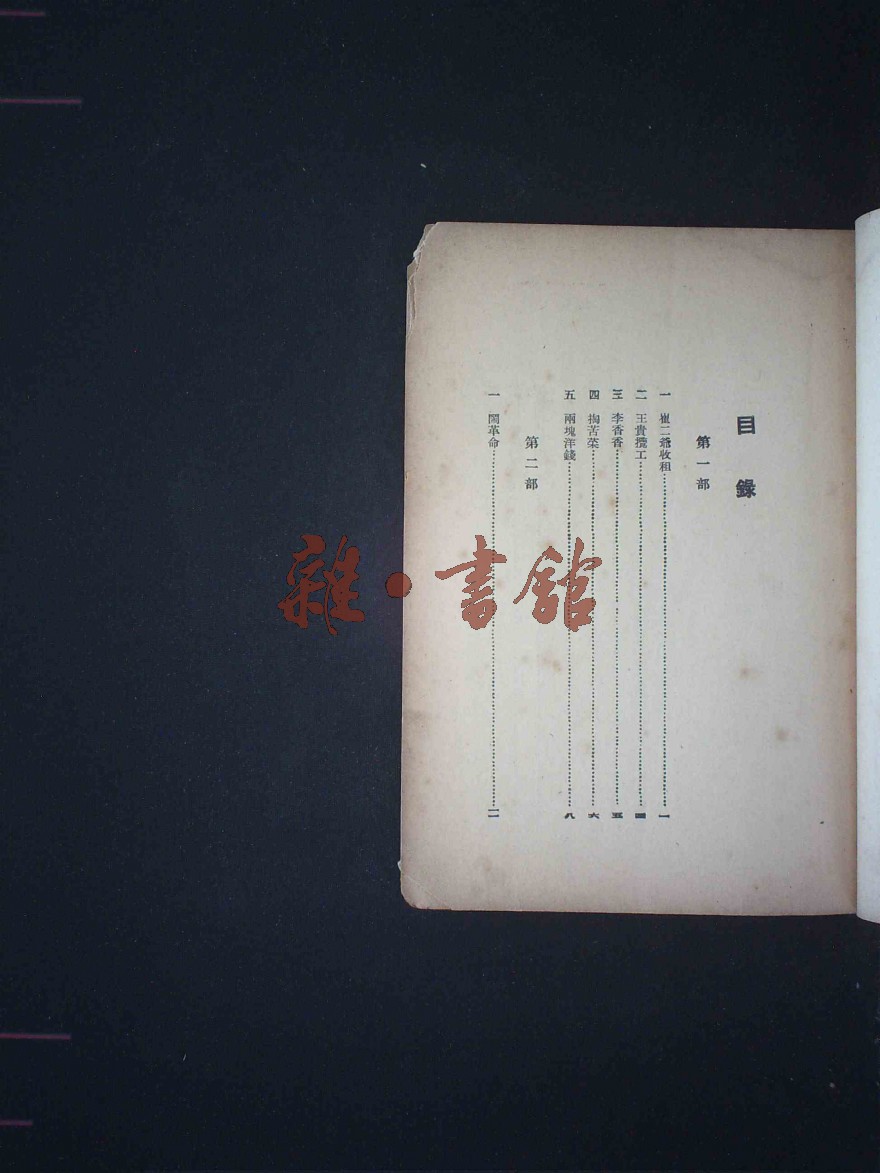 目錄
第一部
一 崔二爺收租 一
二 王貴攬工 四
三 李香香 五
四 掏苦菜 六
五 兩塊洋錢 八
第二部
一 鬧革命
雜·書館